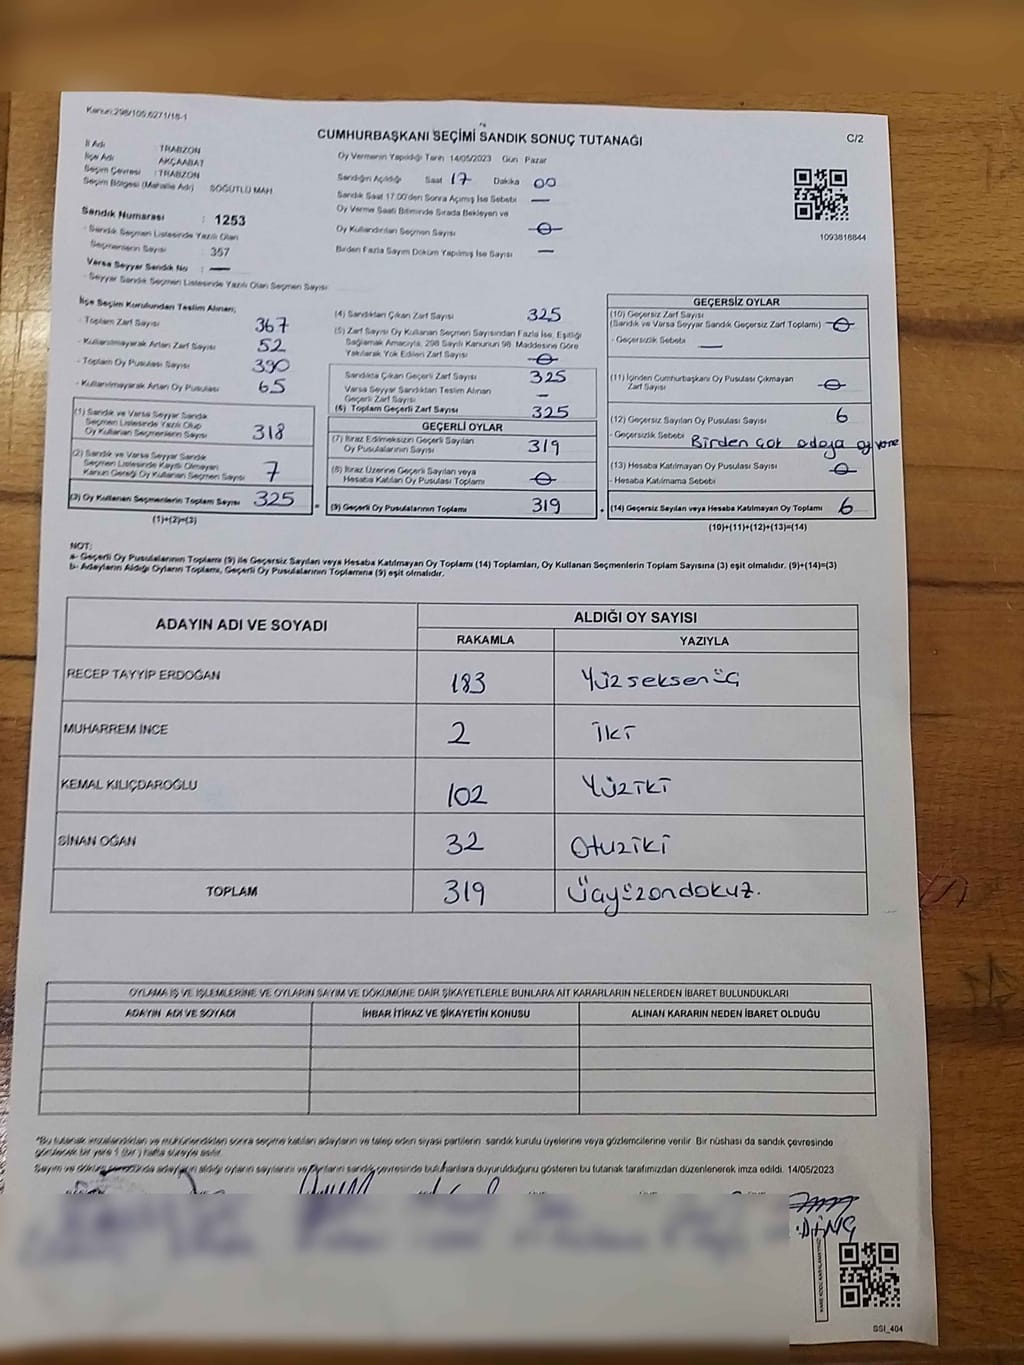 Kanun:298/105,6271/16-1
CUMHURBAŞKANI SEÇİMİ SANDIK SONUÇ TUTANAĞI
C/2
İl Adı : TRABZON
İlçe Adı : AKÇAABAT
Seçim Çevresi : TRABZON
Seçim Bölgesi (Mahalle Adı) SÖĞÜTLÜ MAH.
Sandık Numarası : 1253
- Sandık Seçmen Listesinde Yazılı Olan
Seçmenlerin Sayısı : 357
Varsa Seyyar Sandık No : —
- Seyyar Sandık Seçmen Listesinde Yazılı Olan Seçmen Sayısı
Oy Vermenin Yapıldığı Tarih 14/05/2023 Gün Pazar
Sandığın Açıldığı Saat 17 Dakika 00
Sandık Saat 17.00'den Sonra Açımış İse Sebebi —
Oy Verme Saati Bitiminde Sırada Bekleyen ve
Oy Kullandırılan Seçmen Sayısı 0
Birden Fazla Sayım Döküm Yapılmış İse Sayısı —
1093816844
İlçe Seçim Kurulundan Teslim Alınan;
- Toplam Zarf Sayısı 367
- Kullanılmayarak Artan Zarf Sayısı 52
- Toplam Oy Pusulası Sayısı 390
- Kullanılmayarak Artan Oy Pusulası 65
(1) Sandık ve Varsa Seyyar Sandık
Seçmen Listesinde Yazılı Olup
Oy Kullanan Seçmenlerin Sayısı 318
(2) Sandık ve Varsa Seyyar Sandık
Seçmen Listesinde Kayıtlı Olmayan
Kanun Gereği Oy Kullanan Seçmen Sayısı 7
(3) Oy Kullanan Seçmenlerin Toplam Sayısı 325
(1)+(2)=(3)
(4) Sandıktan Çıkan Zarf Sayısı 325
(5) Zarf Sayısı Oy Kullanan Seçmen Sayısından Fazla İse, Eşitliği
Sağlamak Amacıyla, 298 Sayılı Kanunun 98. Maddesine Göre
Yakılarak Yok Edilen Zarf Sayısı 0
Sandıkta Çıkan Geçerli Zarf Sayısı 325
Varsa Seyyar Sandıktan Teslim Alınan
Geçerli Zarf Sayısı —
(6) Toplam Geçerli Zarf Sayısı 325
GEÇERLİ OYLAR
(7) İtiraz Edilmeksizin Geçerli Sayılan
Oy Pusulalarının Sayısı 319
(8) İtiraz Üzerine Geçerli Sayılan veya
Hesaba Katılan Oy Pusulası Toplamı 0
(9) Geçerli Oy Pusulalarının Toplamı 319
GEÇERSİZ OYLAR
(10) Geçersiz Zarf Sayısı
(Sandık ve Varsa Seyyar Sandık Geçersiz Zarf Toplamı) 0
- Geçersizlik Sebebi —
(11) İçinden Cumhurbaşkanı Oy Pusulası Çıkmayan
Zarf Sayısı 0
(12) Geçersiz Sayılan Oy Pusulası Sayısı 6
- Geçersizlik Sebebi Birden çok adaya oy verme
(13) Hesaba Katılmayan Oy Pusulası Sayısı 0
- Hesaba Katılmama Sebebi
(14) Geçersiz Sayılan veya Hesaba Katılmayan Oy Toplamı 6
(10)+(11)+(12)+(13)=(14)
NOT:
a- Geçerli Oy Pusulalarının Toplamı (9) ile Geçersiz Sayılan veya Hesaba Katılmayan Oy Toplamı (14) Toplamları, Oy Kullanan Seçmenlerin Toplam Sayısına (3) eşit olmalıdır. (9)+(14)=(3)
b- Adayların Aldığı Oyların Toplamı, Geçerli Oy Pusulalarının Toplamına (9) eşit olmalıdır.
ADAYIN ADI VE SOYADI
ALDIĞI OY SAYISI
RAKAMLA YAZIYLA
RECEP TAYYİP ERDOĞAN 183 Yüzseksenüç
MUHARREM İNCE 2 İki
KEMAL KILIÇDAROĞLU 102 Yüziki
SİNAN OĞAN 32 Otuziki
TOPLAM 319 Üçyüzondokuz.
OYLAMA İŞ VE İŞLEMLERİNE VE OYLARIN SAYIM VE DÖKÜMÜNE DAİR ŞİKAYETLERLE BUNLARA AİT KARARLARIN NELERDEN İBARET BULUNDUKLARI
ADAYIN ADI VE SOYADI İHBAR İTİRAZ VE ŞİKAYETİN KONUSU ALINAN KARARIN NEDEN İBARET OLDUĞU
*Bu tutanak imzalandıktan ve mühürlendikten sonra seçime katılan adayların ve talep eden siyasi partilerin sandık kurulu üyelerine veya gözlemcilerine verilir. Bir nüshası da sandık çevresinde
görülecek bir yere 1 (bir) hafta süreyle asılır.
Sayım ve döküm sonucunda adayların aldığı oyların sayılarını ve bunların sandık çevresinde bulunanlara duyurulduğunu gösteren bu tutanak tarafımızdan düzenlenerek imza edildi. 14/05/2023
SSI_404